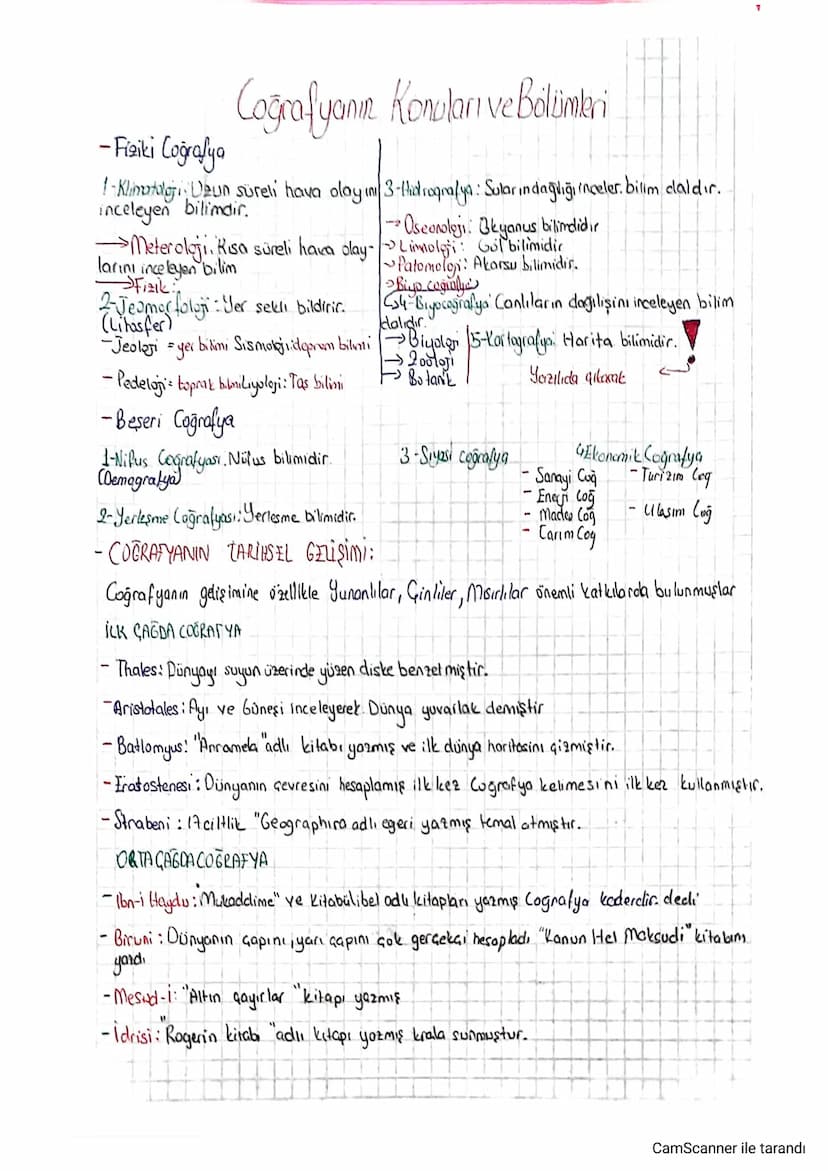 Coğrafyanın Konuları ve Bölümleri
- Fiziki Coğrafya
1-Klimatoloji: Uzun süreli hava olayını
inceleyen bilimdir.
→Meteroloji: Kısa süreli hava olay-
larını inceleyen bilim
→Fizik:
2-Jeomorfoloji: Yer şekli bildirir.
(Litosfer)
-Jeoloji = yer bilimi Sismoloji: deprem bilimi
- Pedeloji = toprak bilimi Liyoloji: Taş bilimi
3-Hidrografya: Suların dağlığı inceler. bilim daldır.
→ Oseonoloji: Okyanus bilimdidir
→ Limnoloji: Göl bilimidir
→ Patomoloji: Akarsu bilimidir.
→ Biyo coğrafya
4-Biyocoğrafya Canlıların dağılişini inceleyen bilim
dalıdır.
→ Biyoloji
→ Zooloji
→ Botanik
5-Kartografya: Harita bilimidir.
Yazılıda çıkacak
- Beşeri Coğrafya
1-Nüfus Coğrafyası. Nüfus bilimidir.
(Demografya)
2-Yerleşme Coğrafyası: Yerleşme bilimidir.
3-Siyasi coğrafya
4Ekonomik Coğrafya
- Sanayi Coğ
- Enerji Coğ
- Maden Coğ
- Tarım Coğ
- Turizim Coğ
- Ulaşım Coğ
- COĞRAFYANIN TARİHSEL GELİŞİMİ:
Coğrafyanın gelişimine özellikle Yunanlılar, Çinliler, Mısırlılar önemli katkılarda bulunmuşlar
İLK ÇAĞDA COĞRAFYA
- Thales: Dünyayı suyun üzerinde yüzen diske benzetmiştir.
-Aristotales: Ayı ve Güneşi inceleyerek Dünya yuvarlak demiştir
- Batlomyus: "Anramela" adlı kitabı yazmış ve ilk dünya haritasını çizmiştir.
- Eratostenesi: Dünyanın çevresini hesaplamış ilk kez Coğrafya kelimesini ilk kez kullanmıştır.
- Strabeni: 17 ciltlik "Geographira adlı eseri yazmış temal atmıştır.
ORTA ÇAĞDA COĞRAFYA
- İbn-i Haydu: "Mukaddime" ve Kitabülibel adlı kitapları yazmış Coğrafya kaderdir. dedi
- Biruni: Dünyanın çapını, yarı çapını çok gerçekçi hesapladı "Kanun Hel Maksudi" kitabını
yazdı
- Mesud-i: "Altın çayırlar" kitapı yazmış
- İdrisi: "Rogerin kitabı" adlı kitapı yazmış krala sunmuştur.
CamScanner ile tarandı